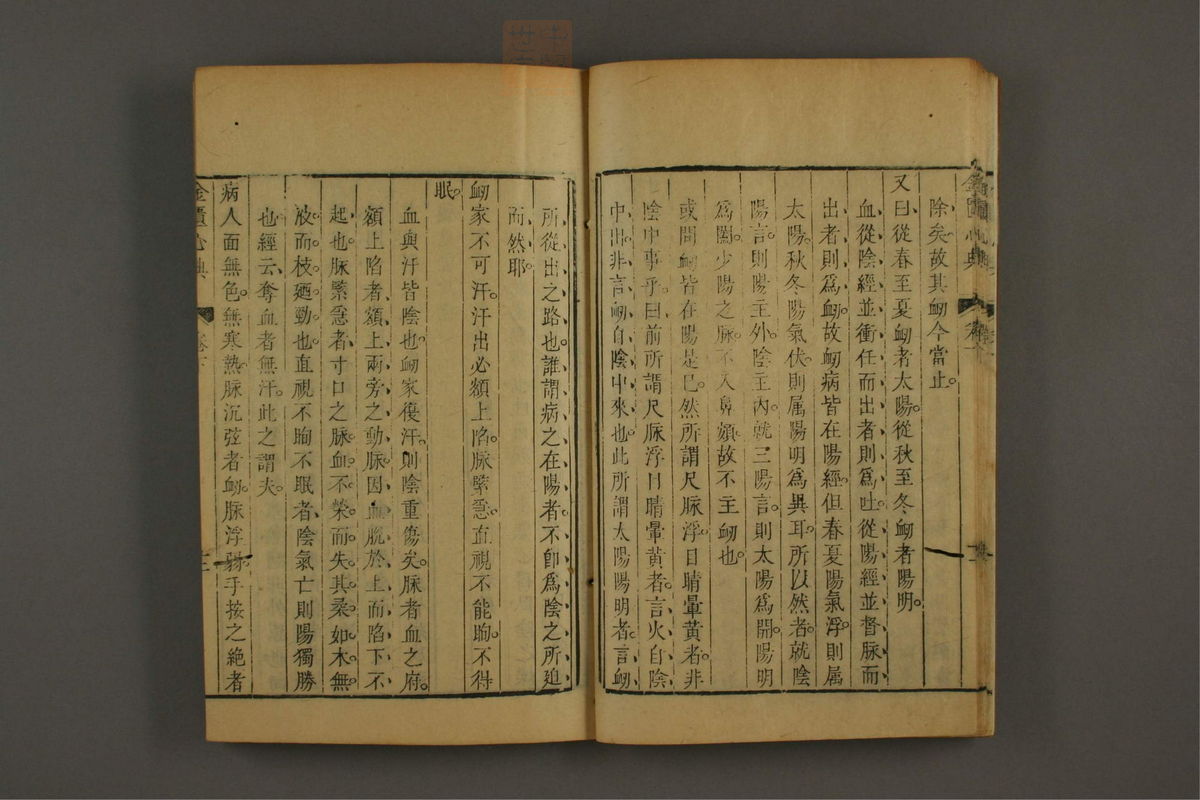 除矣故其衄今當止。
又曰從春至夏衄者太陽。從秋至冬衄者陽明。
血從陰經並衝任而出者則爲吐。從陽經並督脉而
出者則爲衄。故衄病皆在陽經。但春夏陽氣浮。則属
太陽。秋冬陽氣伏。則属陽明爲異耳。所以然者。就陰
陽言。則陽主外。陰主內。就三陽言。則太陽爲開。陽明
爲闔。少陽之脉。不入鼻頞。故不主衄也。
或問衄皆在陽是已。然所謂尺脉浮。目睛暈黃者。非
陰中事乎。曰前所謂尺脉浮目睛暈黃者。言火自陰
中出。非言衄自陰中來也。此所謂太陽陽明者。言衄
所從出之路也。誰謂病之在陽者。不卽爲陰之所迫
而然耶。
衄家不可汗。汗出必額上陷。脉緊急。直視不能眴。不得
眠。
血與汗皆陰也。衄家復汗。則陰重傷矣。脉者血之府。
額上陷者。額上兩旁之動脉。因血脫於上而陷下不
起也。脉緊急者。寸口之脉。血不榮而失其柔。如木無
液而枝迺勁也。直視不眴不眠者。陰氣亡則陽獨勝
也。經云。奪血者無汗。此之謂夫。
病人面無色。無寒熱。脉沉弦者衄。脉浮弱。手按之絕者
金匱心典